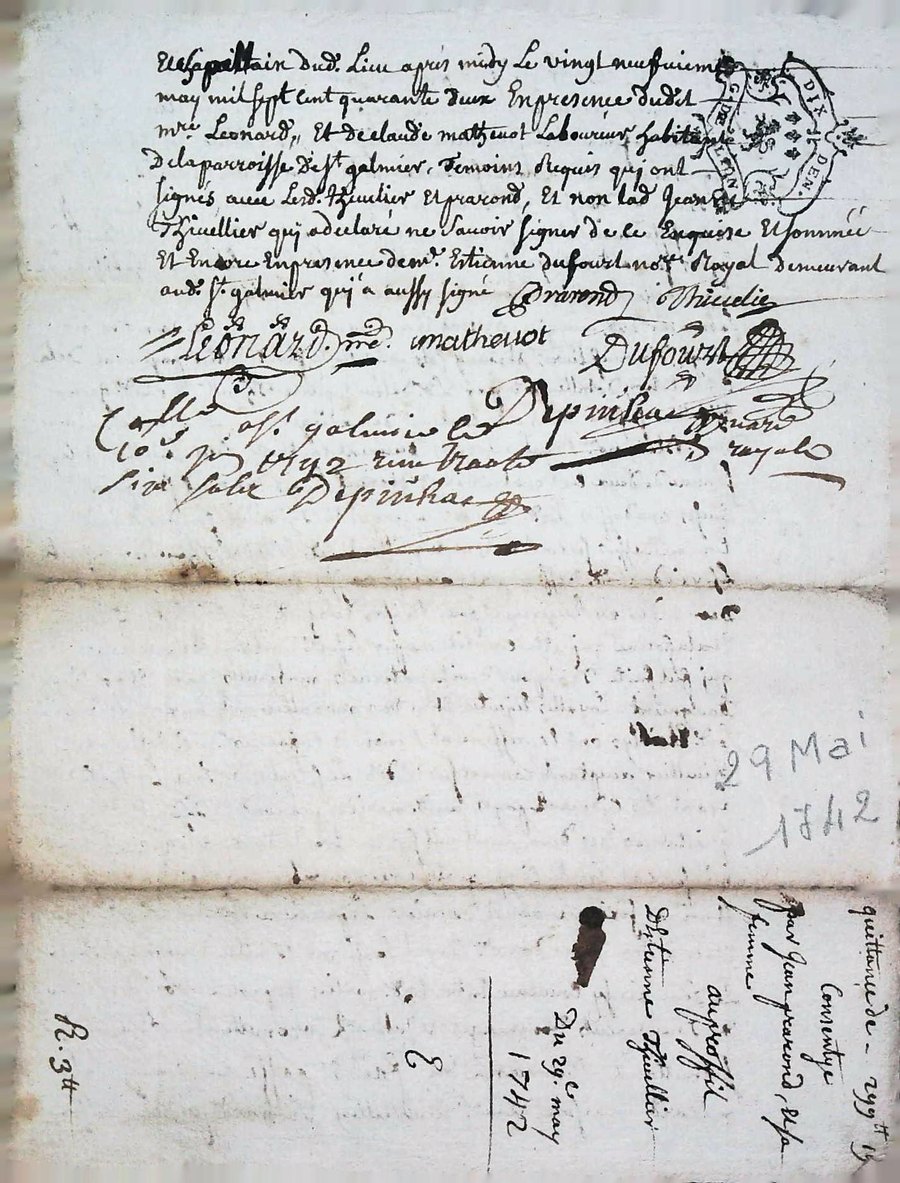 Et Capittain dud. Lieu après midy Le vingt neufvieme
may mil sept cent quarante deux En presence dudit
mre Leonard,, Et de claude mathevot Laboureur habitant
De la parroisse De st galmier, Temoins Requis qui ont
signés avec Lesd. Thivelier Et prarond, Et non lad Jeanne
Thivellier qui a declaré ne savoir signer de ce Enquise Et sommée
Et Encore En presence de mr. Estienne dufourt not. Royal demeurant
aud. st. galmier qui a aussy signé Prarond Thivelier
Leonard. mre. mathevot Dufourt
a st. galmier le
Depinhac
royal
Depinhac
G. DE
DIX DEN.
29 Mai
1742
quittance de - 299tt 15
Consentye
par Jean prarond, et sa
femme
au proffit
D'Etienne Thivellier
Du 29e. may
1742
R. 3tt